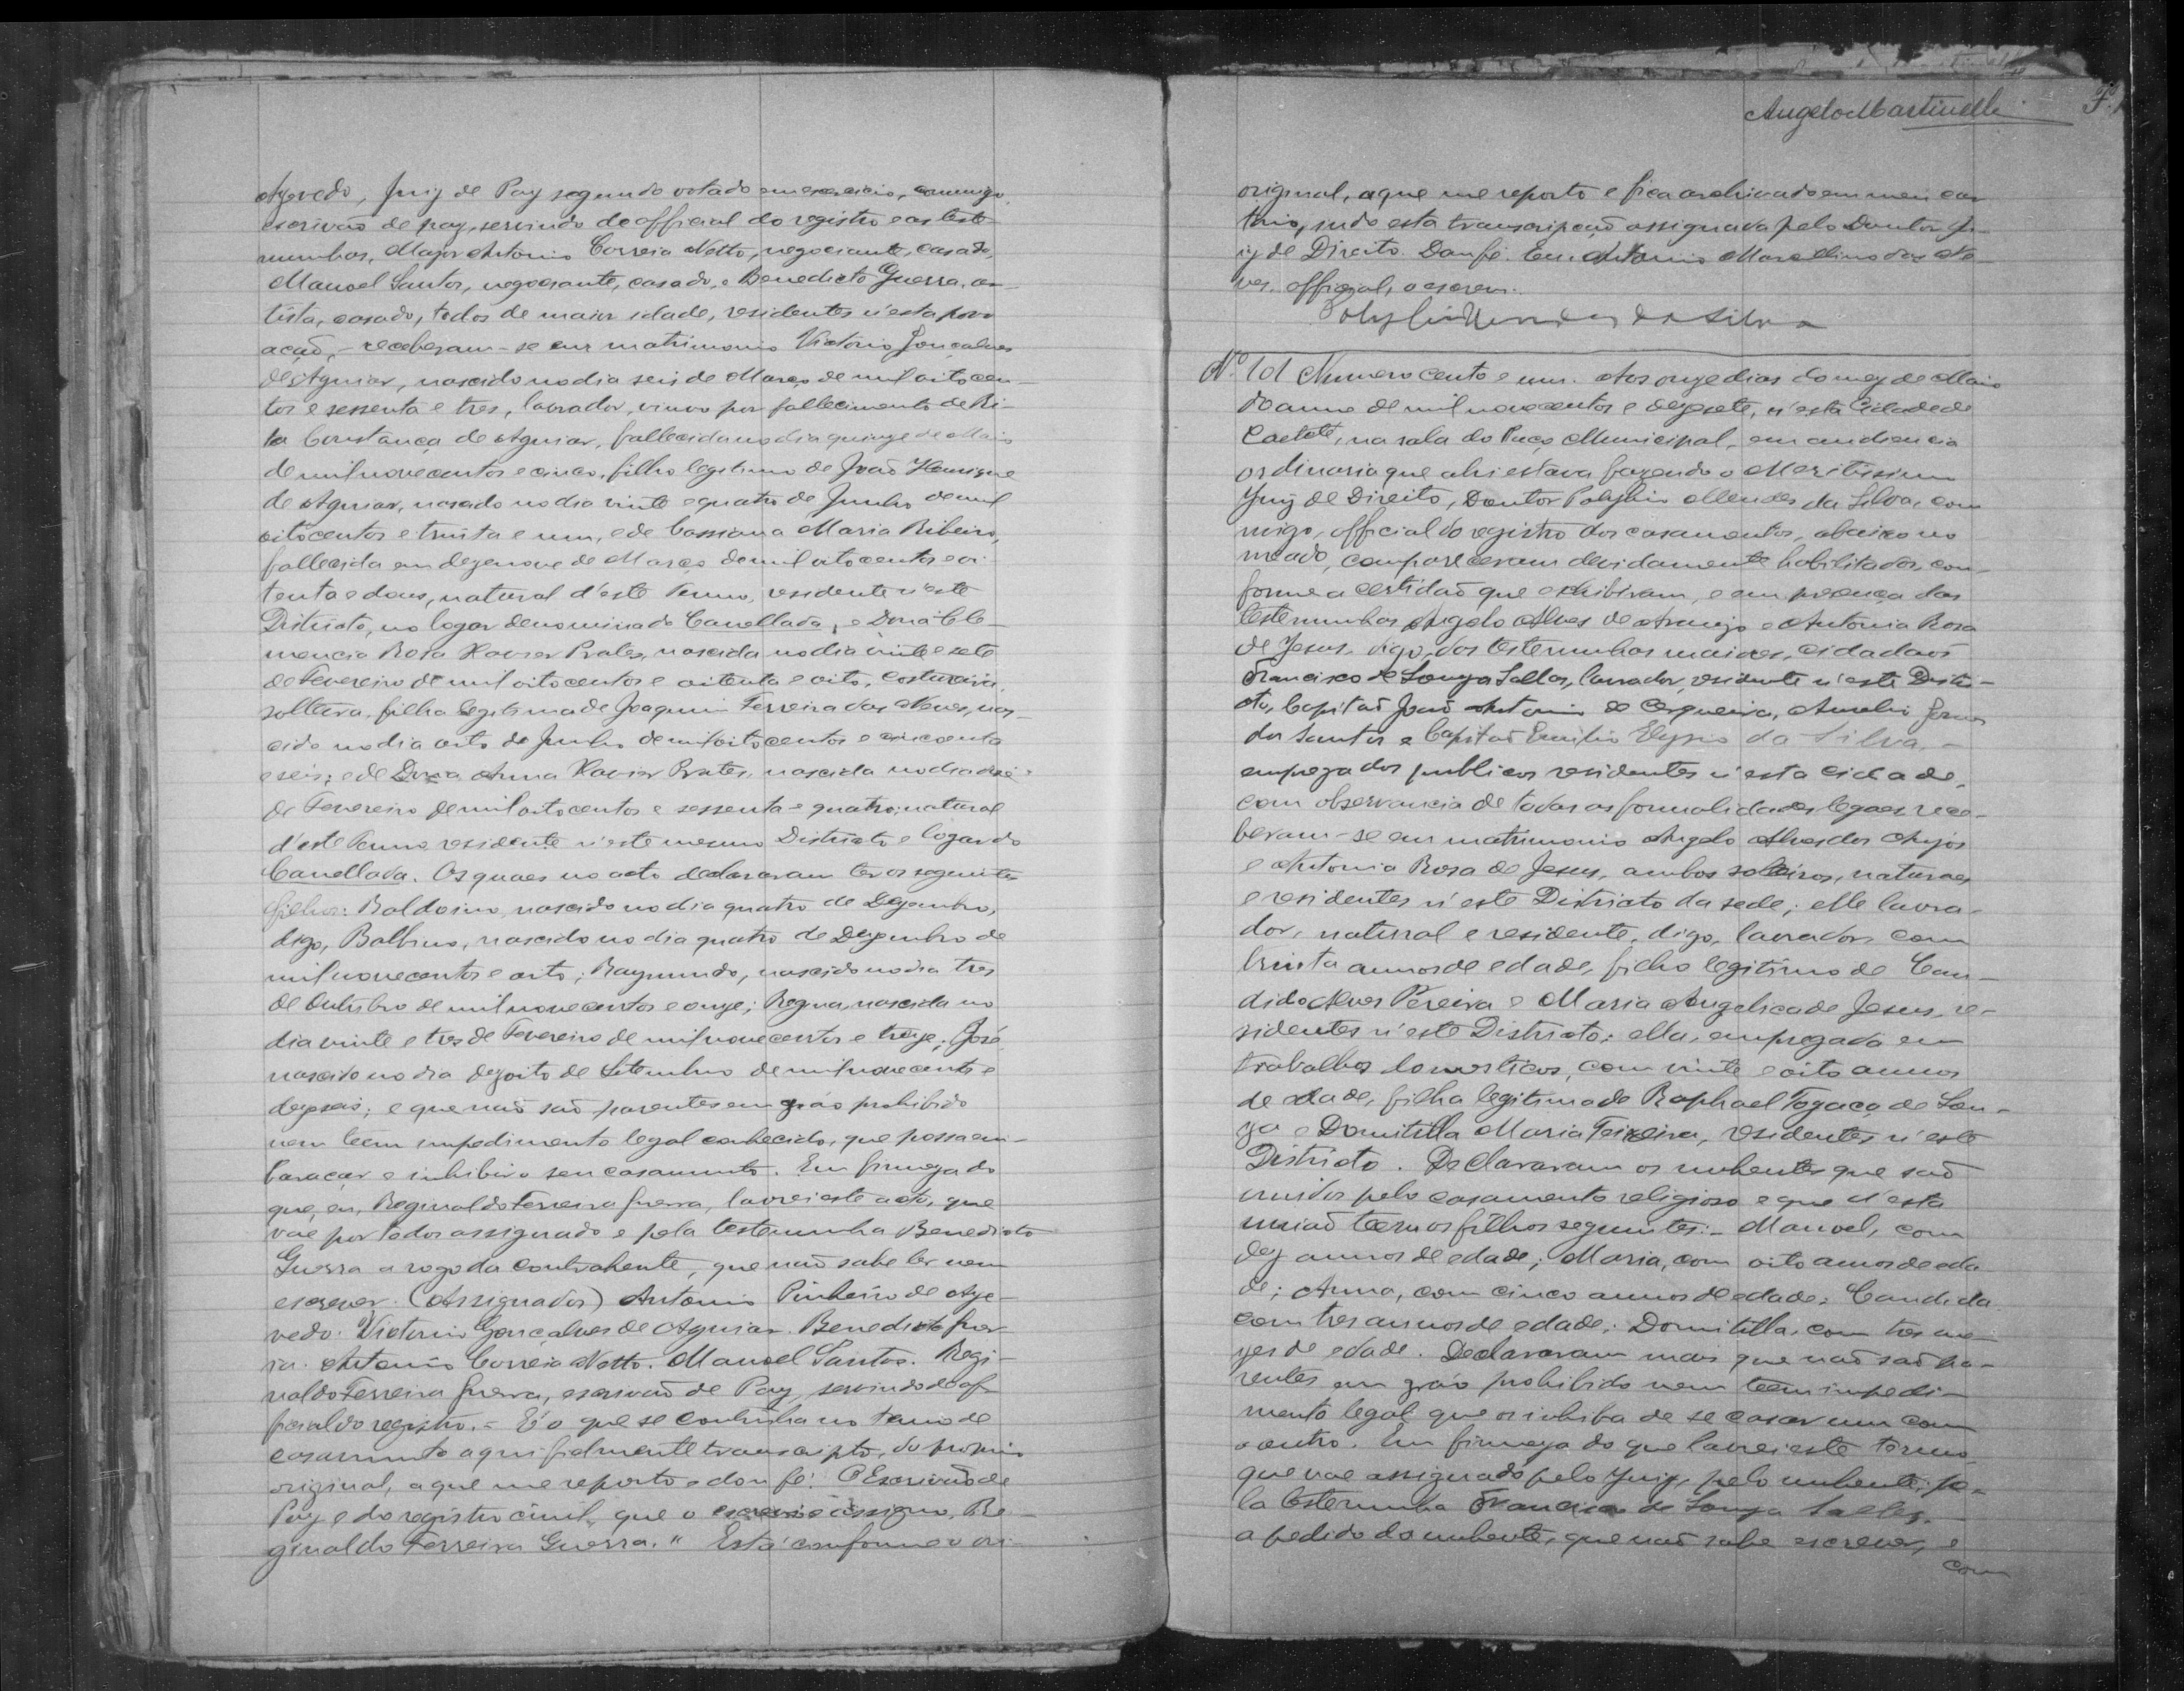 Azevedo, Juiz de Paz segundo votado em exercicio, commigo
escrivão de paz, servindo de official do registro e as teste-
munhas, Major Antonio Correia Netto, negociante, casado,
Manoel Santos, negociante, casado, e Benedicto Guerra, ar-
tista, casado, todos de maior idade, residentes n'esta povo
ação, - receberam-se em matrimonio Victorio Gonçalves
de Aguiar, nascido no dia seis de Março de mil oito cen-
tos e sessenta e tres, lavrador, viuvo por fallecimento de Ri-
ta Constança de Aguiar, fallecida no dia quinze de Maio
de mil nove centos e cinco, filho legitimo de João Henrique
de Aguiar, nascido no dia vinte e quatro de Junho de mil
oitocentos e trinta e um, e de Cassiana Maria Ribeiro,
fallecida em dezenove de Março de mil oito centos e oi-
tenta e dous, natural d'este Termo, residente n'este
Districto, no logar denominado Canellada, e Dona Cle-
mencia Rosa Xavier Prates, nascida no dia vinte e sete
de Fevereiro de mil oito centos e oitenta e oito, costureira,
solteira, filha legitima de Joaquim Ferreira das Neves, nas-
cido no dia oito de Junho de mil oito centos e cincoenta
e seis; e de Dona Anna Xavier Prates, nascida no dia
de Fevereiro de mil oito centos e sessenta e quatro; natural
d'este Termo residente n'este mesmo Districto e logar do
Canellada. Os quaes no acto declararam ter os seguintes
filhos: Baldoino, nascido no dia quatro de Dezembro,
digo, Balbino, nascido no dia quatro de Dezembro de
mil nove centos e oito; Raymundo, nascido no dia tres
de Outubro de mil nove centos e onze; Regina, nascida no
dia vinte e tres de Fevereiro de mil nove centos e treze; José,
nascido no dia dezoito de Setembro de mil nove centos e
dezeseis; e que não são parentes em gráo prohibido
nem teem impedimento legal conhecido, que possa em-
baraçar e inhibir o seu casamento. Em firmeza do
que, eu, Reginaldo Ferreira Guerra, lavrei este acto, que
vae por todos assignado e pela testemunha Benedicto
Guerra a rogo da contrahente, que não sabe ler nem
escrever. (Assignados) Antonio Pinheiro de Aze-
vedo. Victorio Gonçalves de Aguiar. Benedicto Guer-
ra. Antonio Correia Netto. Manoel Santos. Regi-
naldo Ferreira Guerra, escrivão de Paz, servindo de of-
ficial do registro. - É o que se continha no termo de
casamento aqui fielmente transcripto, do proprio
original, a que me reporto e dou fé. O Escrivão de
Paz e do registro civil que o escrevi e assigno, Re-
ginaldo Ferreira Guerra." Está conforme o ori-
Angelo Martinelli
original, a que me reporto e fica archivado em meu car
torio, sendo esta transcripção assignada pelo Doutor Ju-
iz de Direito. Dou fé. Eu, Antonio Marcellino das Ne-
ves, official, o escrevi.
Polybio Mendes da Silva
Nº 101 Numero cento e um. Aos onze dias do mez de Maio
do anno de mil nove centos e dezesete, n'esta Cidade de
Caeteté, na sala do Paço Municipal, em audiencia
ordinaria que ahi estava fazendo o Meritissimo
Juiz de Direito, Doutor Polybio Mendes da Silva, com
migo, official do registro dos casamentos, abaixo no
meado, compareceram devidamente habilitados, con-
forme a certidão que exhibiram, e em presença das
testemunhas Angelo Alves de Araujo e Antonia Rosa
de Jesus, digo, das testemunhas maiores, cidadãos
Francisco de Souza Salles, lavrador, residente n'este Distri-
cto, Capitão João Antonio de Cerqueira, Aurelio
dos Santos e Capitão Emilio Elysio da Silva, -
empregados publicos residentes n'esta cidade,
com observancia de todas as formalidades legaes rece-
beram-se em matrimonio Angelo Alves dos Anjos
e Antonia Rosa de Jesus, ambos solteiros, naturaes
e residentes n'este Districto da sede; elle lavra-
dor, natural e residente, digo, lavrador, com
trinta annos de edade, filho legitimo de Can-
dido Alves Pereira e Maria Angelica de Jesus, re-
sidentes n'este Districto; ella, empregada em
trabalhos domesticos, com vinte e oito annos
de edade, filha legitima de Raphael Fogaça de Sou-
za e Domitilla Maria Teixeira, residentes n'este
Districto. Declararam os nubentes que são
unidos pelo casamento religioso e que d'esta
união teem os filhos seguintes: - Manoel, com
dez annos de edade; Maria, com oito annos de eda
de; Anna, com cinco annos de edade; Candida
com tres annos de edade; Domitilla, com tres me-
zes de edade. Declararam mais que não são pa-
rentes em gráo prohibido nem teem impedi-
mento legal que os inhiba de se casar um com
o outro. Em firmeza do que lavrei este termo,
que vae assignado pelo Juiz, pelo nubente, pe-
la testemunha Francisco de Souza Salles,
a pedido da nubente, que não sabe escrever, e
com